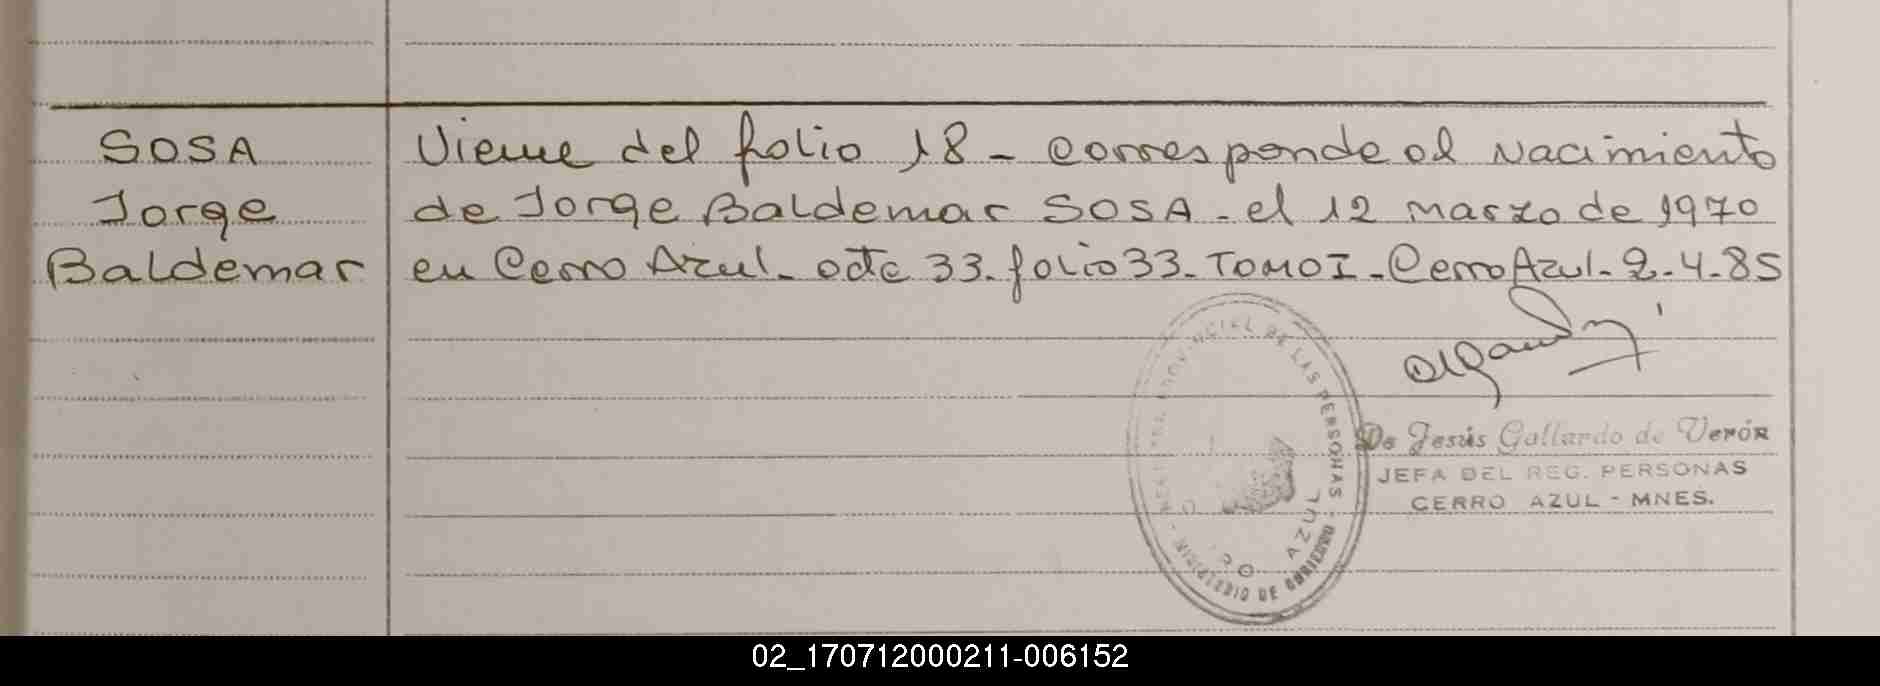 SOSA
Jorge
Baldemar
Viene del folio 18 - corresponde al nacimiento
de Jorge Baldemar SOSA - el 12 marzo de 1970
en Cerro Azul - acta 33 - folio 33 - TOMO I - Cerro Azul - 2 - 4 - 85
PROVINCIAL DE LAS PERSONAS -
MINISTERIO DE GOBIERNO
AZUL
De Jesús Gallardo de Verón
JEFA DEL REG. PERSONAS
CERRO AZUL - MNES.
02_170712000211-006152